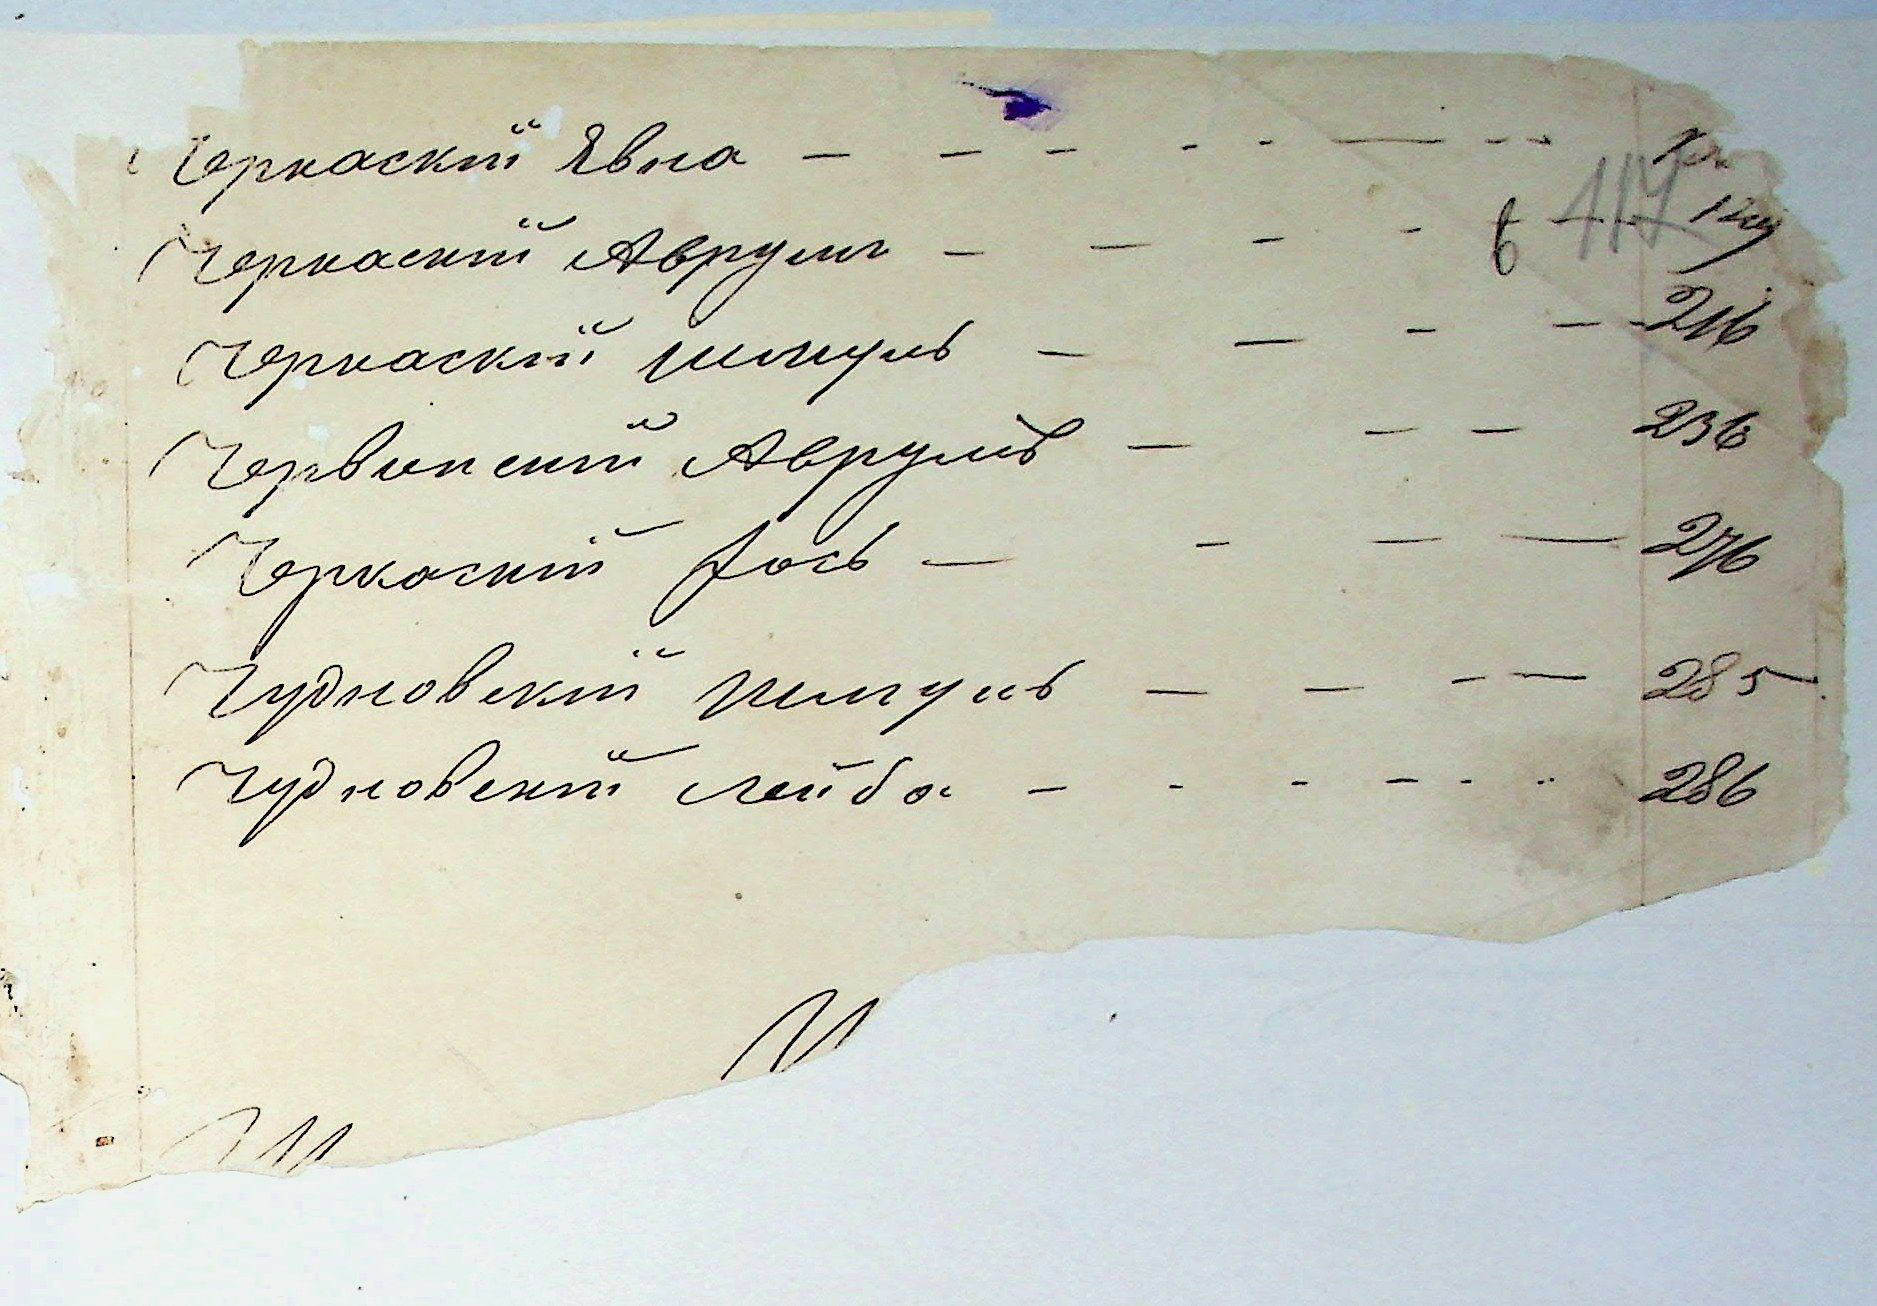 Черкаскій Явна — — — - - — - -
Черкаскій Аврумъ — — - - 6 117
Черкаскій Шмуль — — - — 216
Червинскій Аврумъ — — — 236
Черкаскій Іось — - — — 276
Чудновскій Шмуль — — - — 285
Чудновскій Лейба — - - - - - 286
Ш